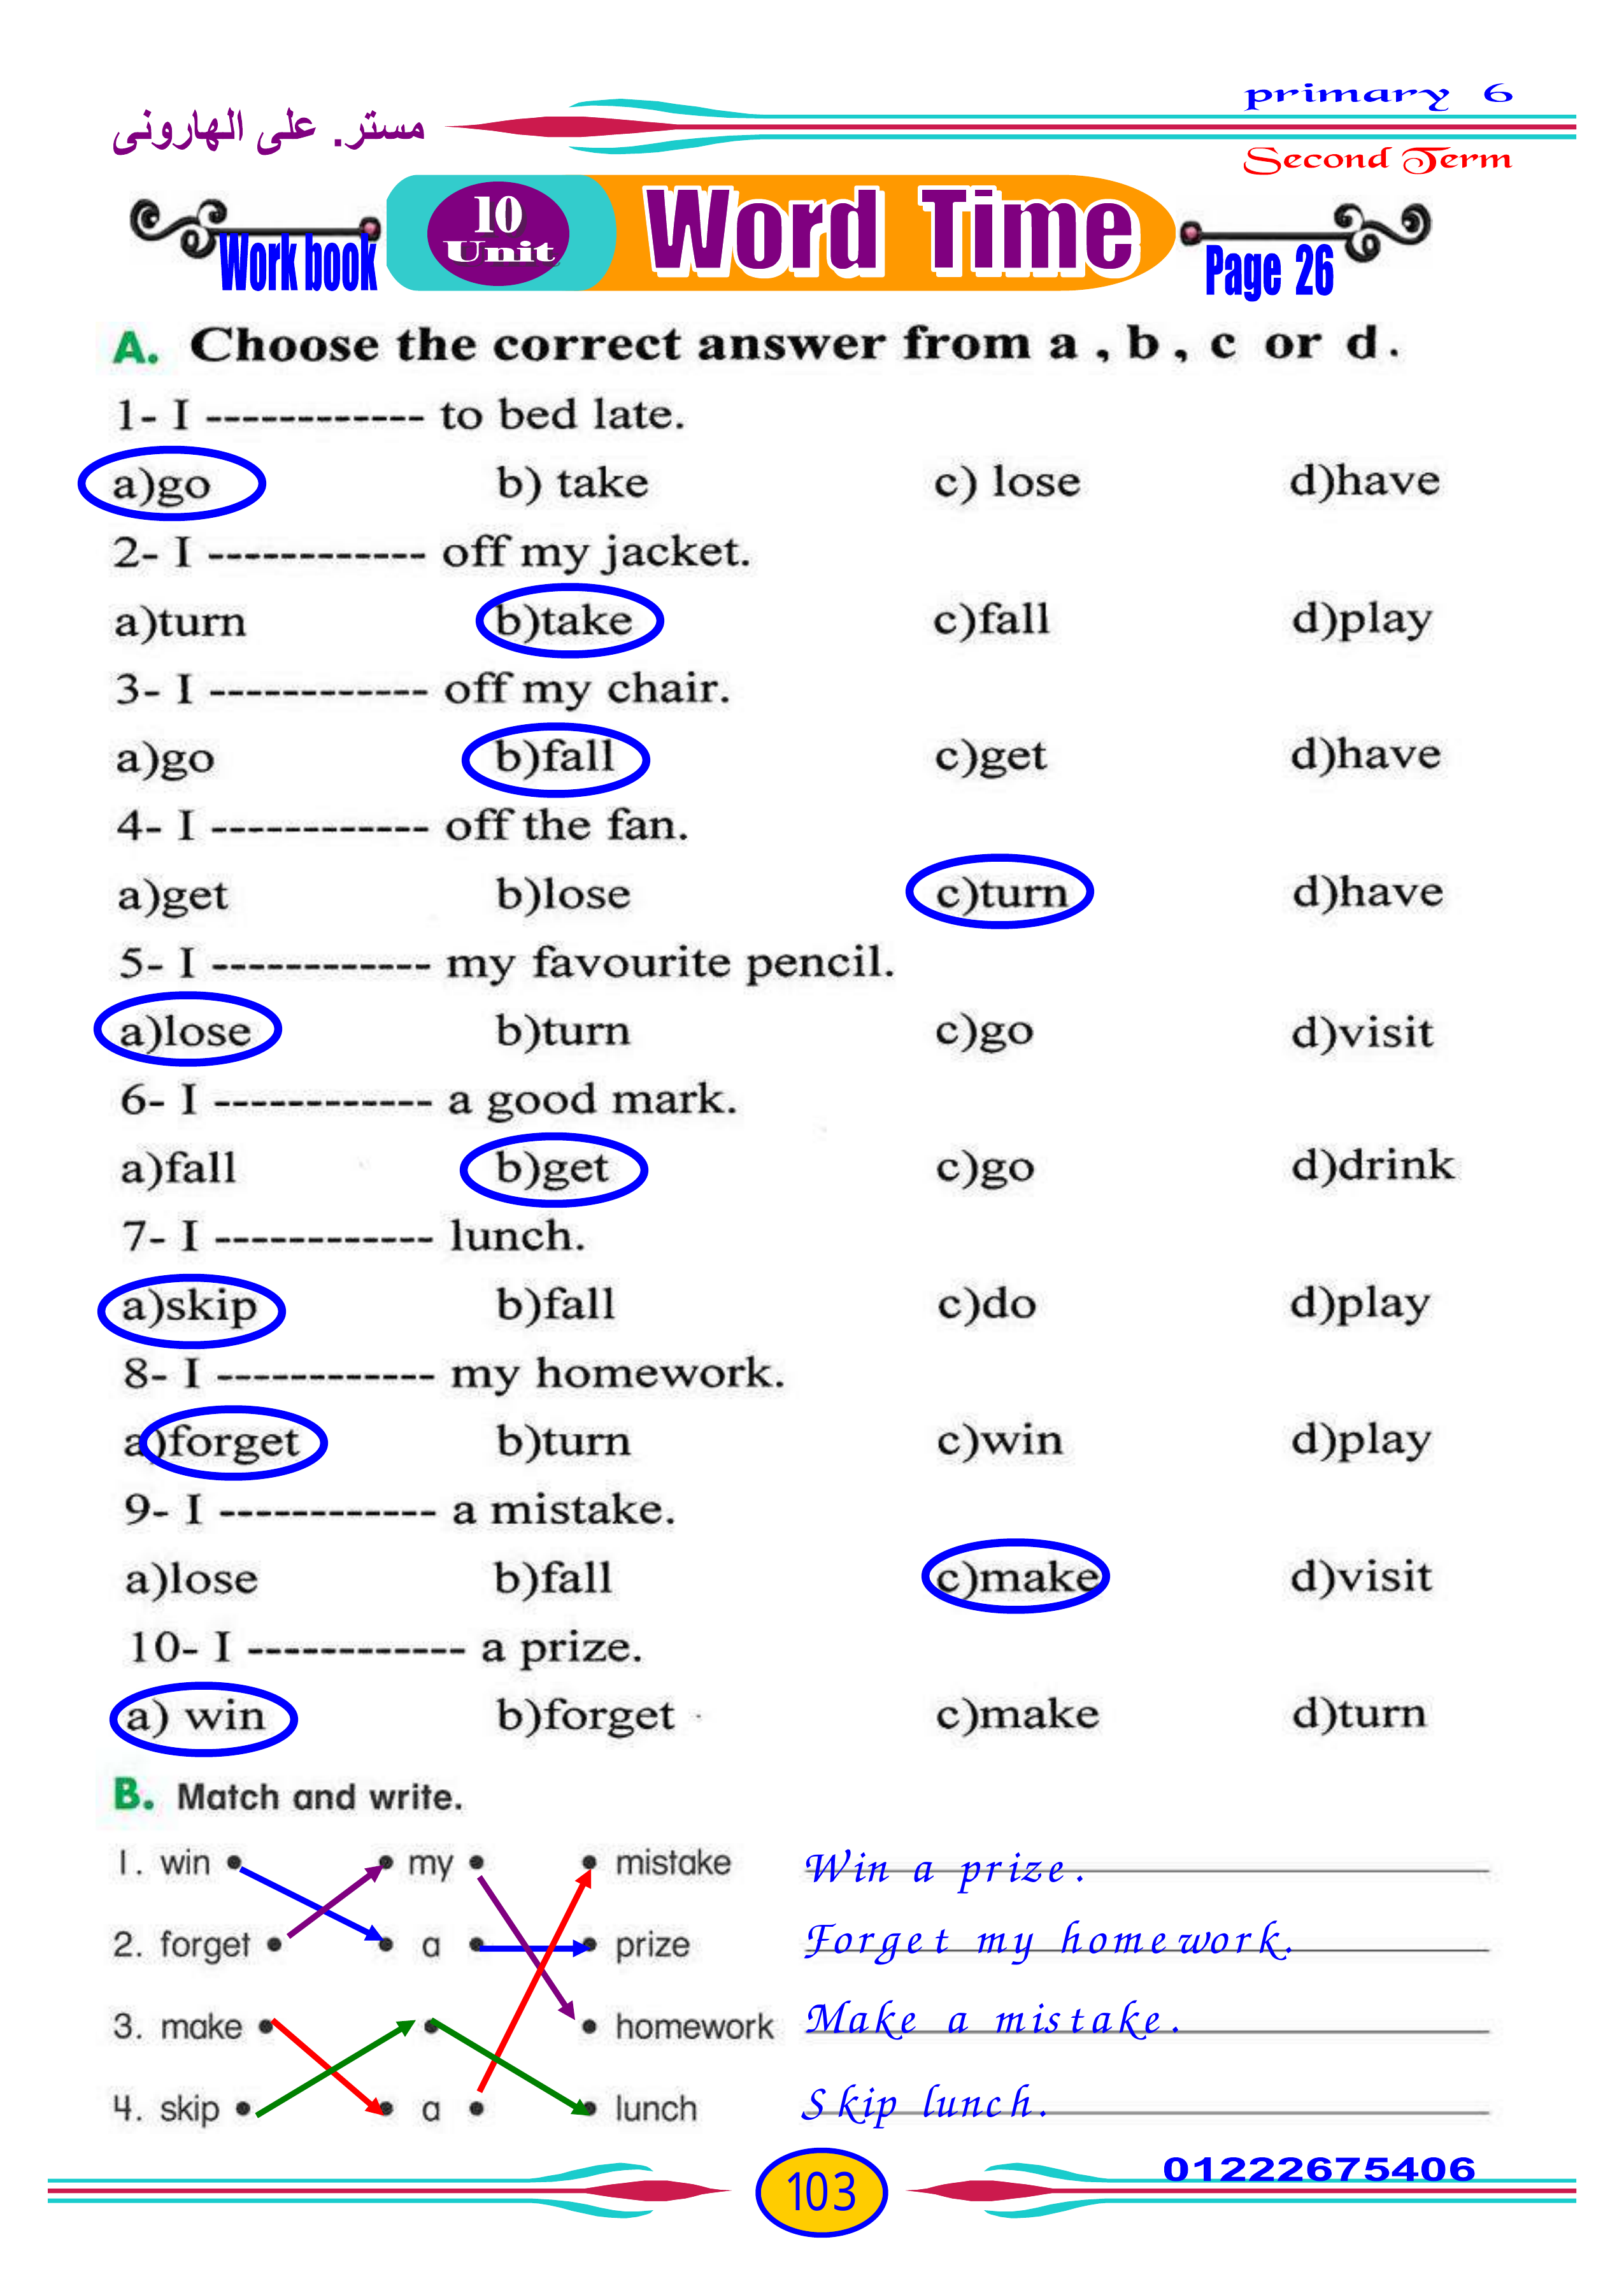 primary 6
مستر. على الهارونى
Second Term
10
Unit
Word Time
Work book
Page 26
A. Choose the correct answer from a , b , c or d .
1- I ------------ to bed late.
a)go b) take c) lose d)have
2- I ------------ off my jacket.
a)turn b)take c)fall d)play
3- I ------------ off my chair.
a)go b)fall c)get d)have
4- I ------------ off the fan.
a)get b)lose c)turn d)have
5- I ------------ my favourite pencil.
a)lose b)turn c)go d)visit
6- I ------------ a good mark.
a)fall b)get c)go d)drink
7- I ------------ lunch.
a)skip b)fall c)do d)play
8- I ------------ my homework.
a)forget b)turn c)win d)play
9- I ------------ a mistake.
a)lose b)fall c)make d)visit
10- I ------------ a prize.
a) win b)forget c)make d)turn
B. Match and write.
1. win my mistake Win a prize.
2. forget a prize Forget my homework.
3. make homework Make a mistake.
4. skip a lunch Skip lunch.
01222675406
103